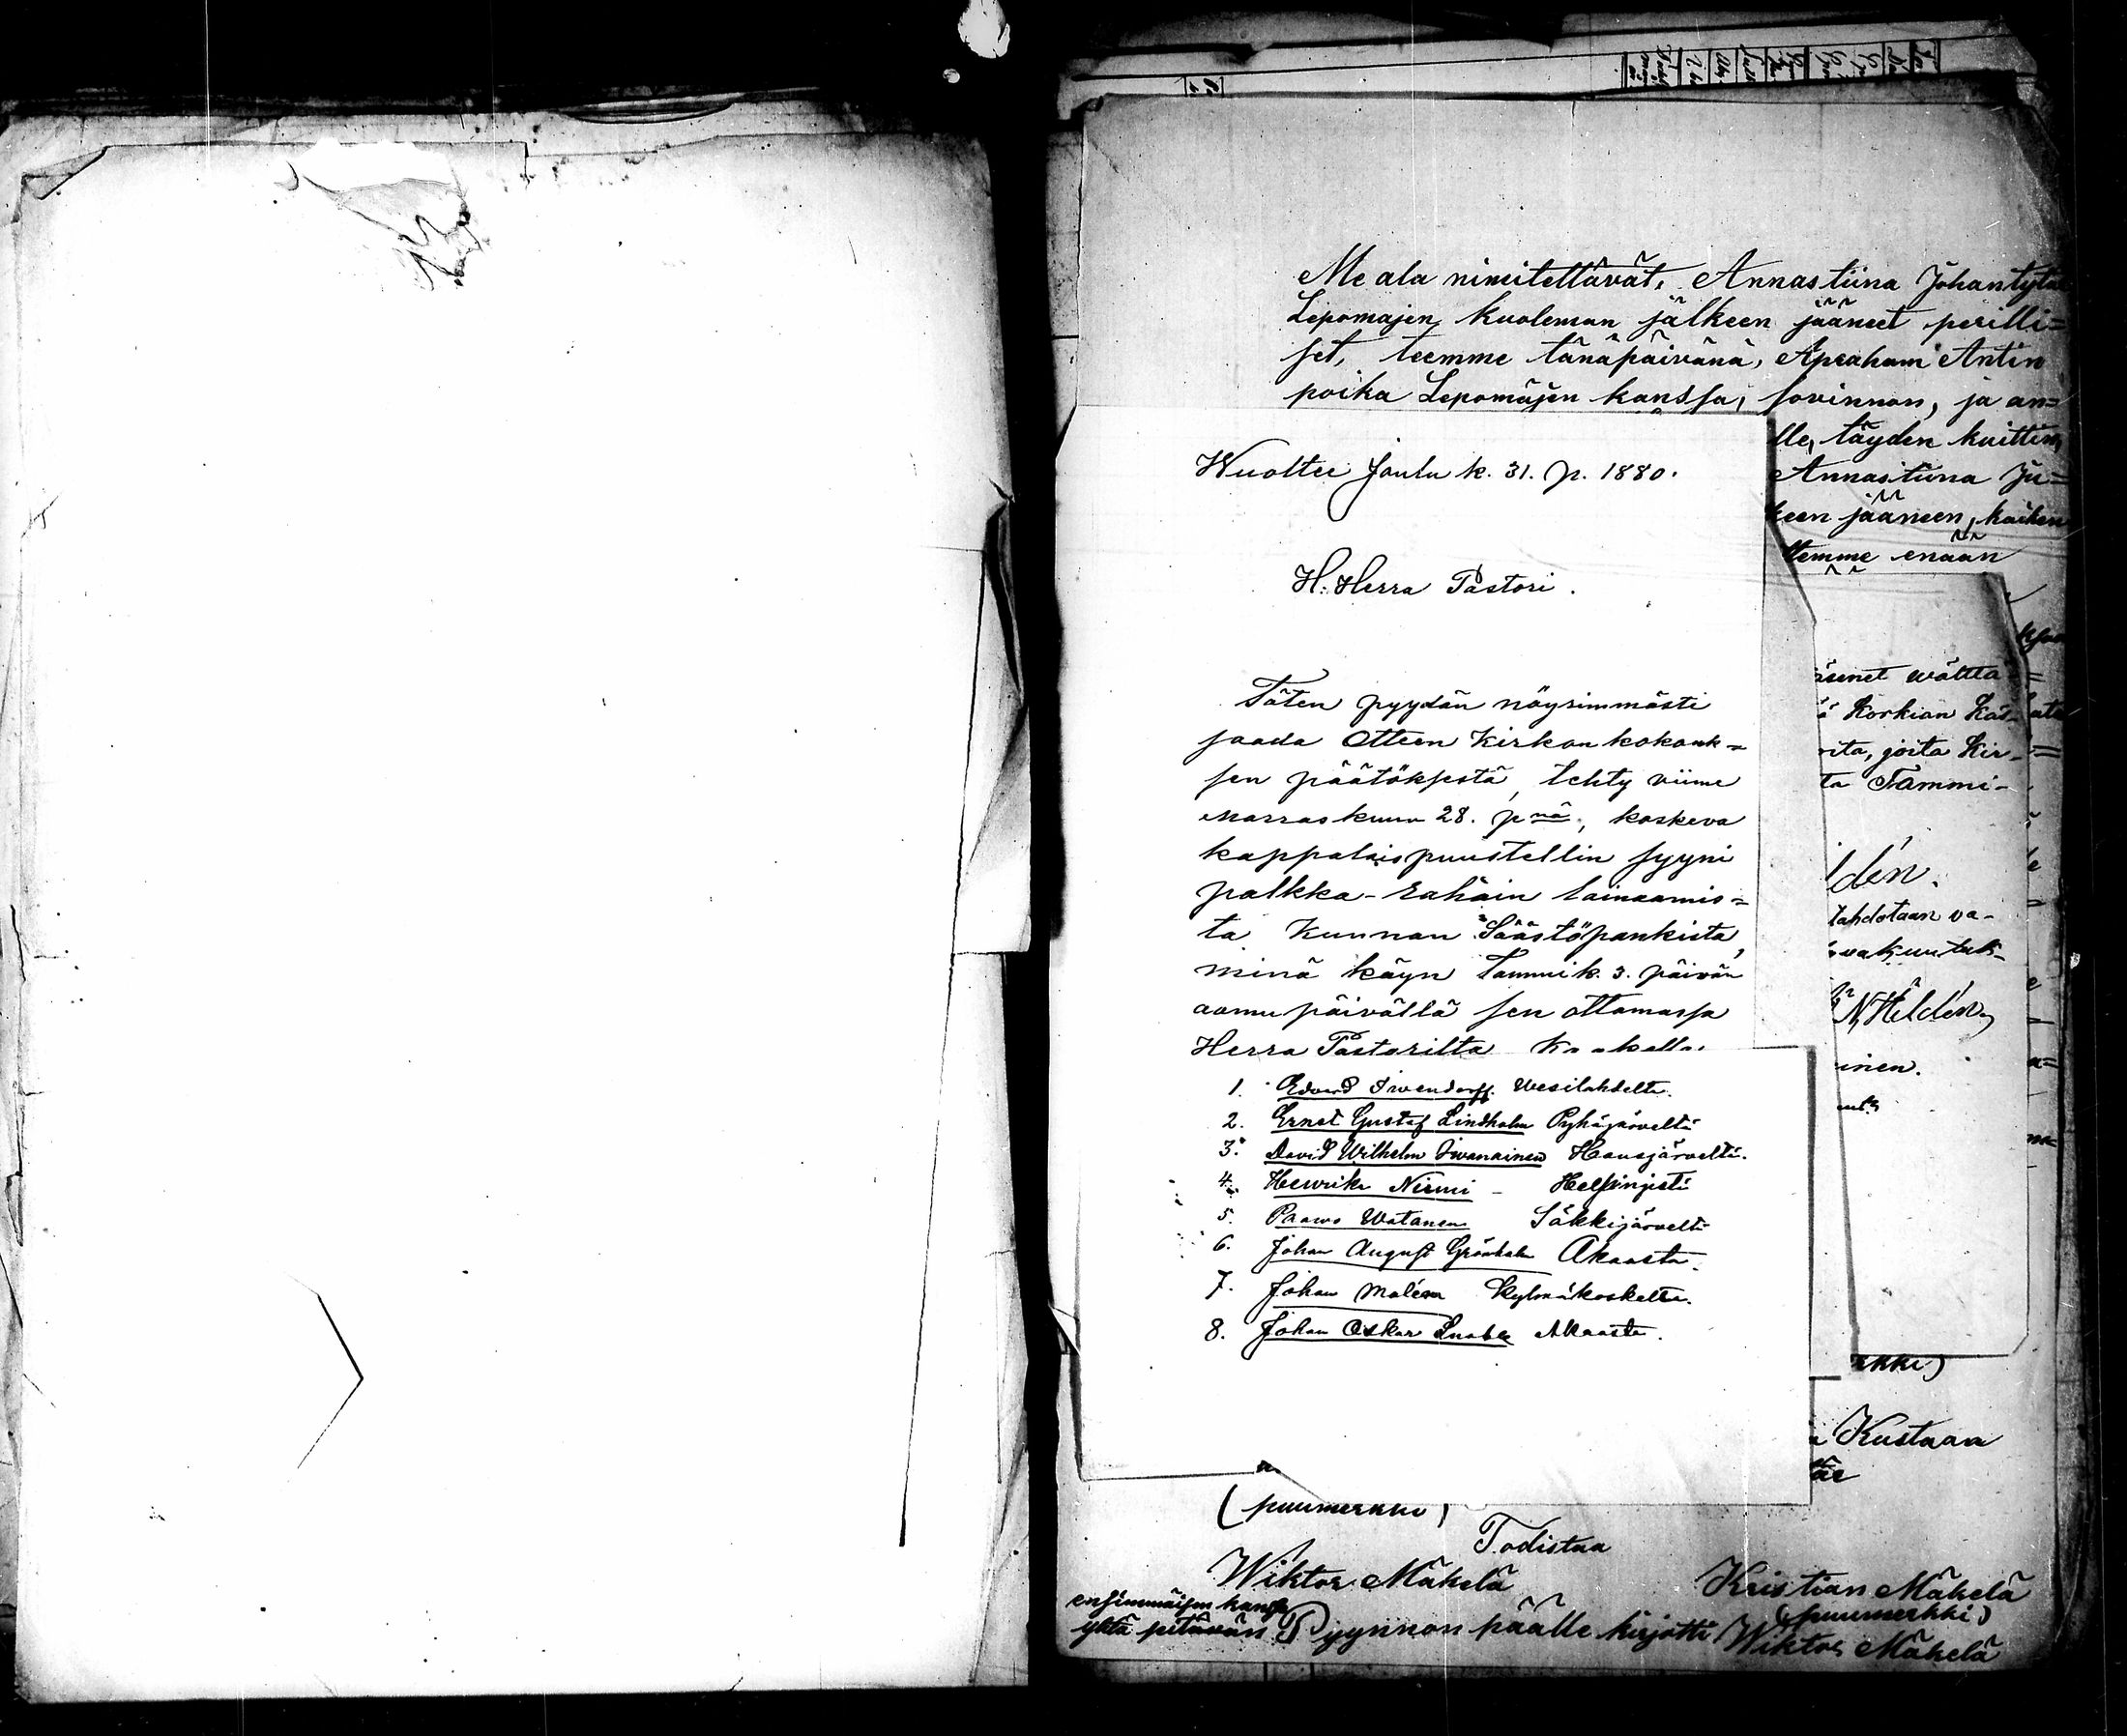 Me ala nimitettävät, Annastiina Johantytär
Lepomäjen kuoleman jälkeen jääneet perilli=
set, teemme tänäpäivänä, Apraham Antin
poika Lepomäjen kanssa, sovinnon, ja an=
lle, täyden kuittin,
Annastiina Ju=
keen jääneen, kaiken
ttemme enään
Wuoltee Joulu k. 31. p. 1880.
H. Herra Pastori.
Täten pyydän nöyrimmästi
saada Otteen Kirkon kokouk=
sen päätöksestä, tehty viime
Marraskuun 28. p nä, koskeva
kappalaispuustellin syyni
palkka-rahain lainaamis=
ta Kunnan Säästöpankista,
minä käyn Tammik. 3. päivän
aamupäivällä sen ottamassa
Herra Pastorilta
1. Edvard Iwendorff. Wesilahdelta.
2. Ernst Gustaf Lindholm Pyhäjärveltä
3. David Wilhelm Iwanainen Hausjärveltä.
4. Henrik Niemi - Helsingistä
5. Paawo Watanen Säkkijärveltä
6. Johan August Grönholm Akaasta.
7. Johan Malén Kylmäkoskelta.
8. Johan Oskar Akaasta.
äsenet wälttä
ä Korkian Käs-
oita, joita Kir-
ta Tammi-
ldén.
tahdotaan va-
vakuutuk-
N, Heldén,
inen.
rkki)
Kustaan
(puumerkki)
Todistaa
Wiktor Mäkelä
Kristian Mäkelä
(puumerkki)
ensimmäisen kanssa
yhtä pitävän Pyynnön päälle kirjotti Wiktor Mäkelä